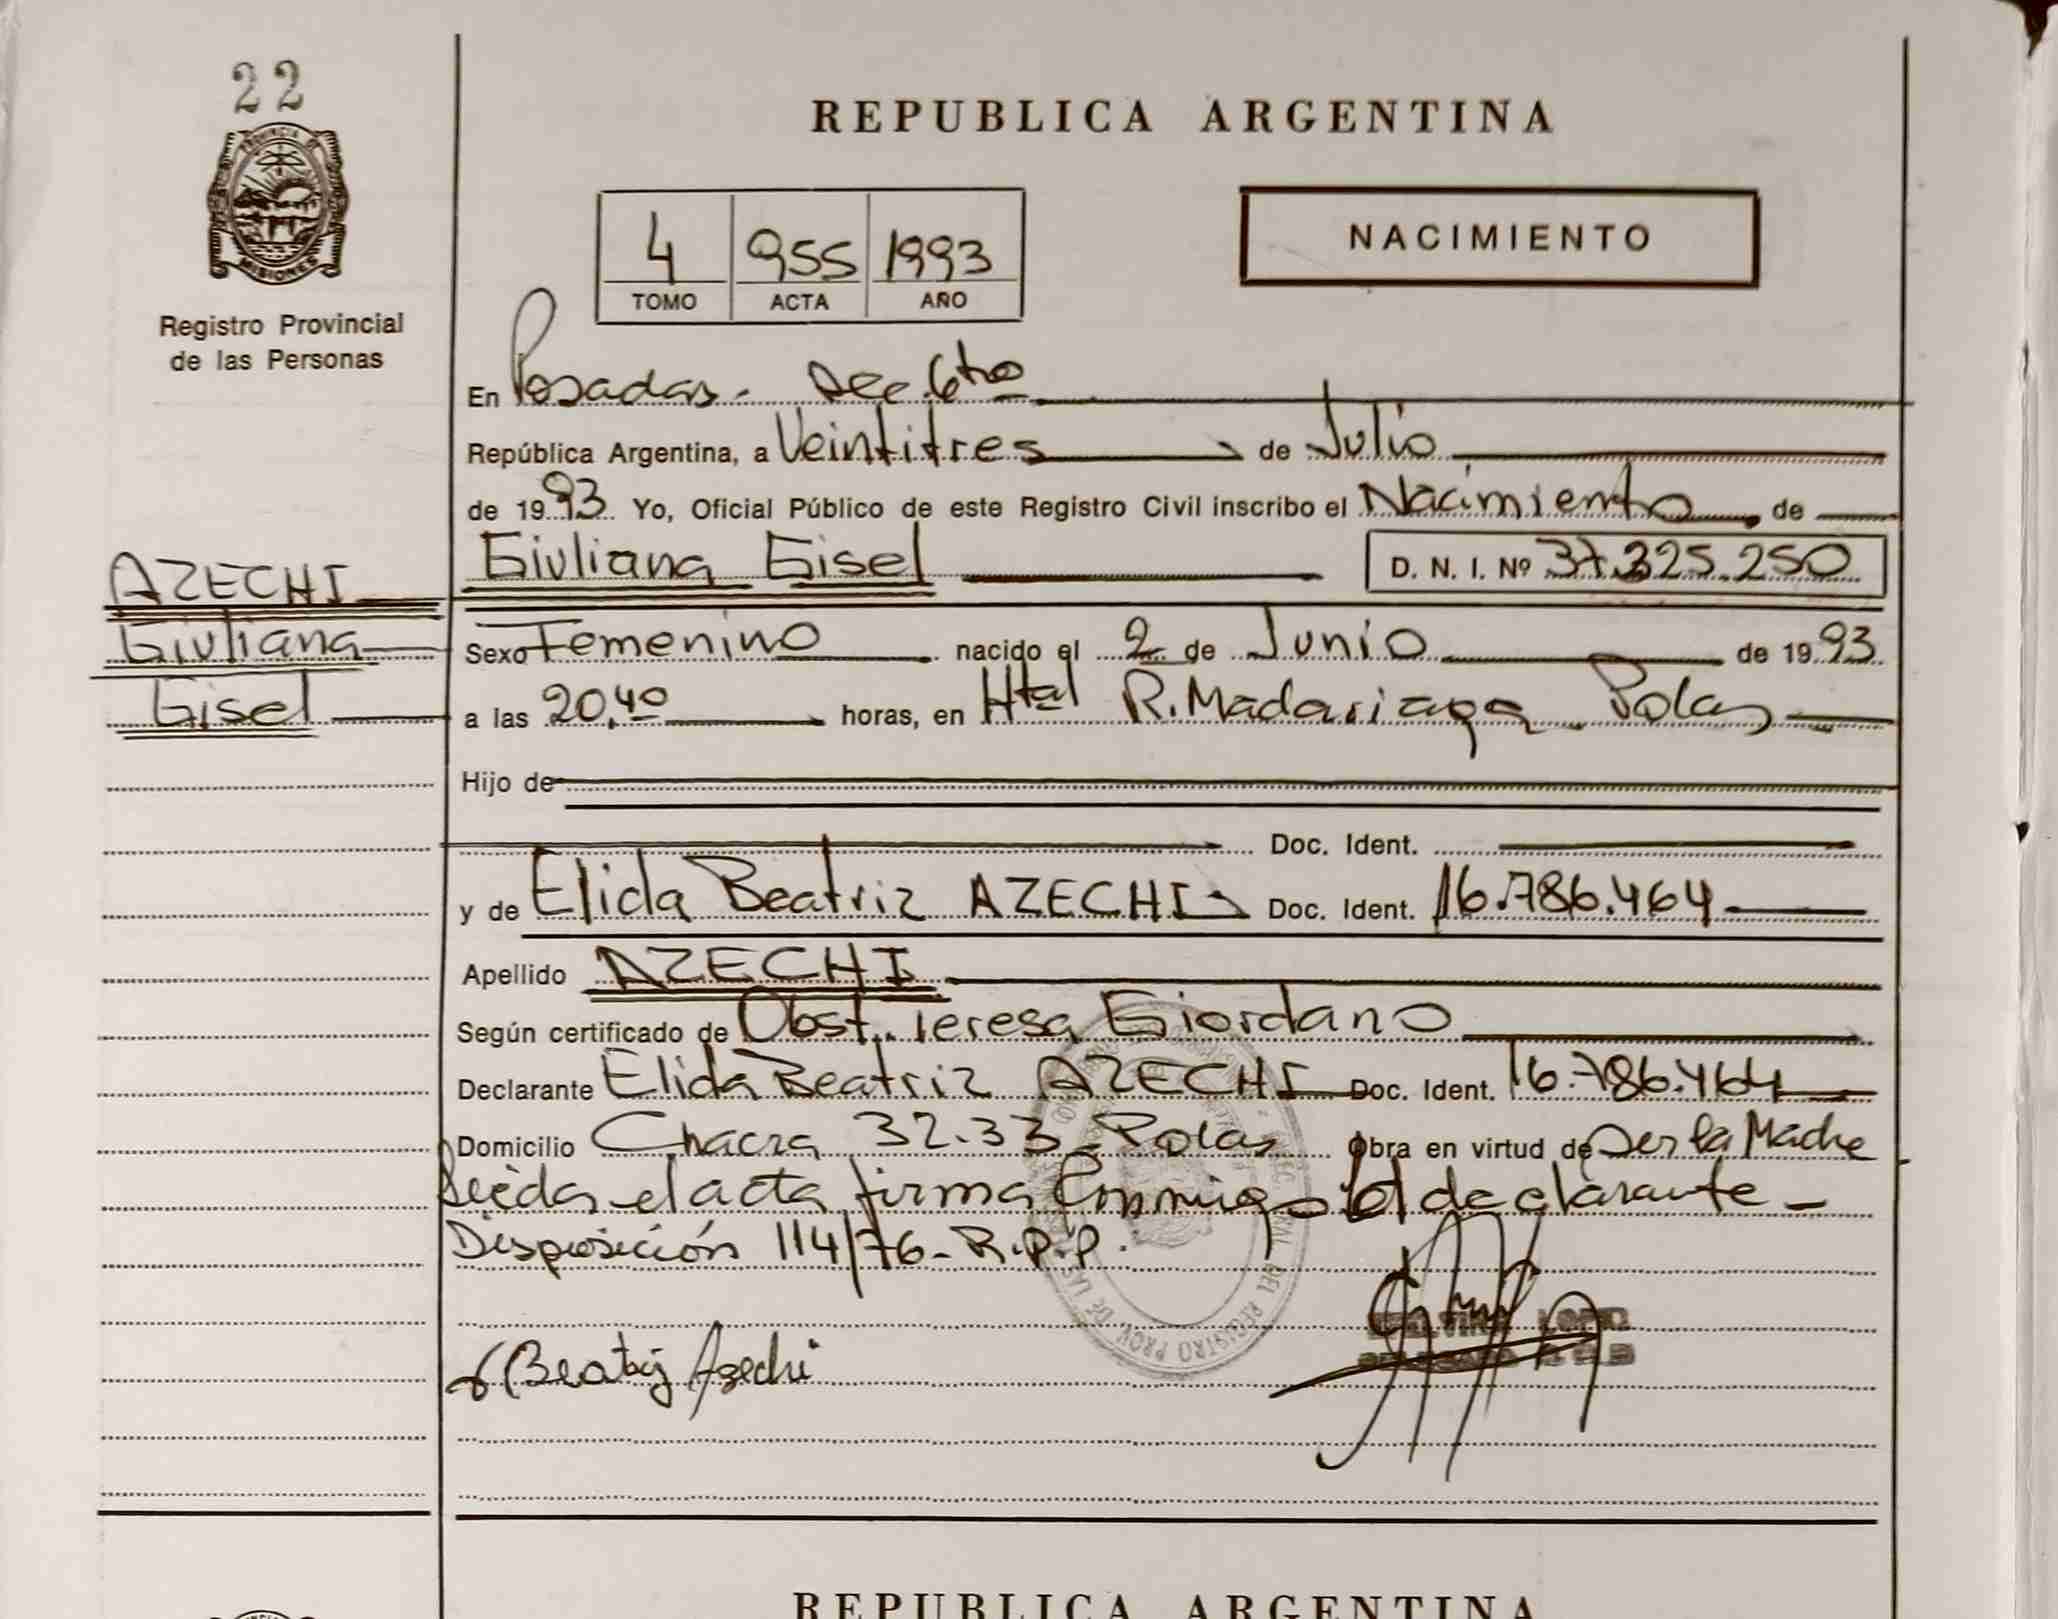 22
PROVINCIA DE
MISIONES
Registro Provincial
de las Personas
REPUBLICA ARGENTINA
4 955 1993
TOMO ACTA AÑO
NACIMIENTO
En Posadas - Secc. 6tra
República Argentina, a Veintitres de Julio
de 1993 Yo, Oficial Público de este Registro Civil inscribo el Nacimiento de
AZECHI
Giuliana
Gisel
Giuliana Gisel D. N. I. Nº 37.325.250
Sexo Femenino nacido el 2 de Junio de 1993
a las 20,40 horas, en Htal R. Madariaga Pdas
Hijo de
Doc. Ident.
y de Elida Beatriz AZECHI Doc. Ident. 16.786.464
Apellido AZECHI
Según certificado de Obst. Teresa Giordano
Declarante Elida Beatriz AZECHI Doc. Ident. 16.786.464
Domicilio Chacra 32-33 Pdas Obra en virtud de Ser la Madre
Leída el acta firma Conmigo el declarante -
Disposición 114/76 - R.P.P.
DEL REGISTRO PROV. DE LAS
Beatriz Azechi
LOPEZ
REPUBLICA ARGENTINA